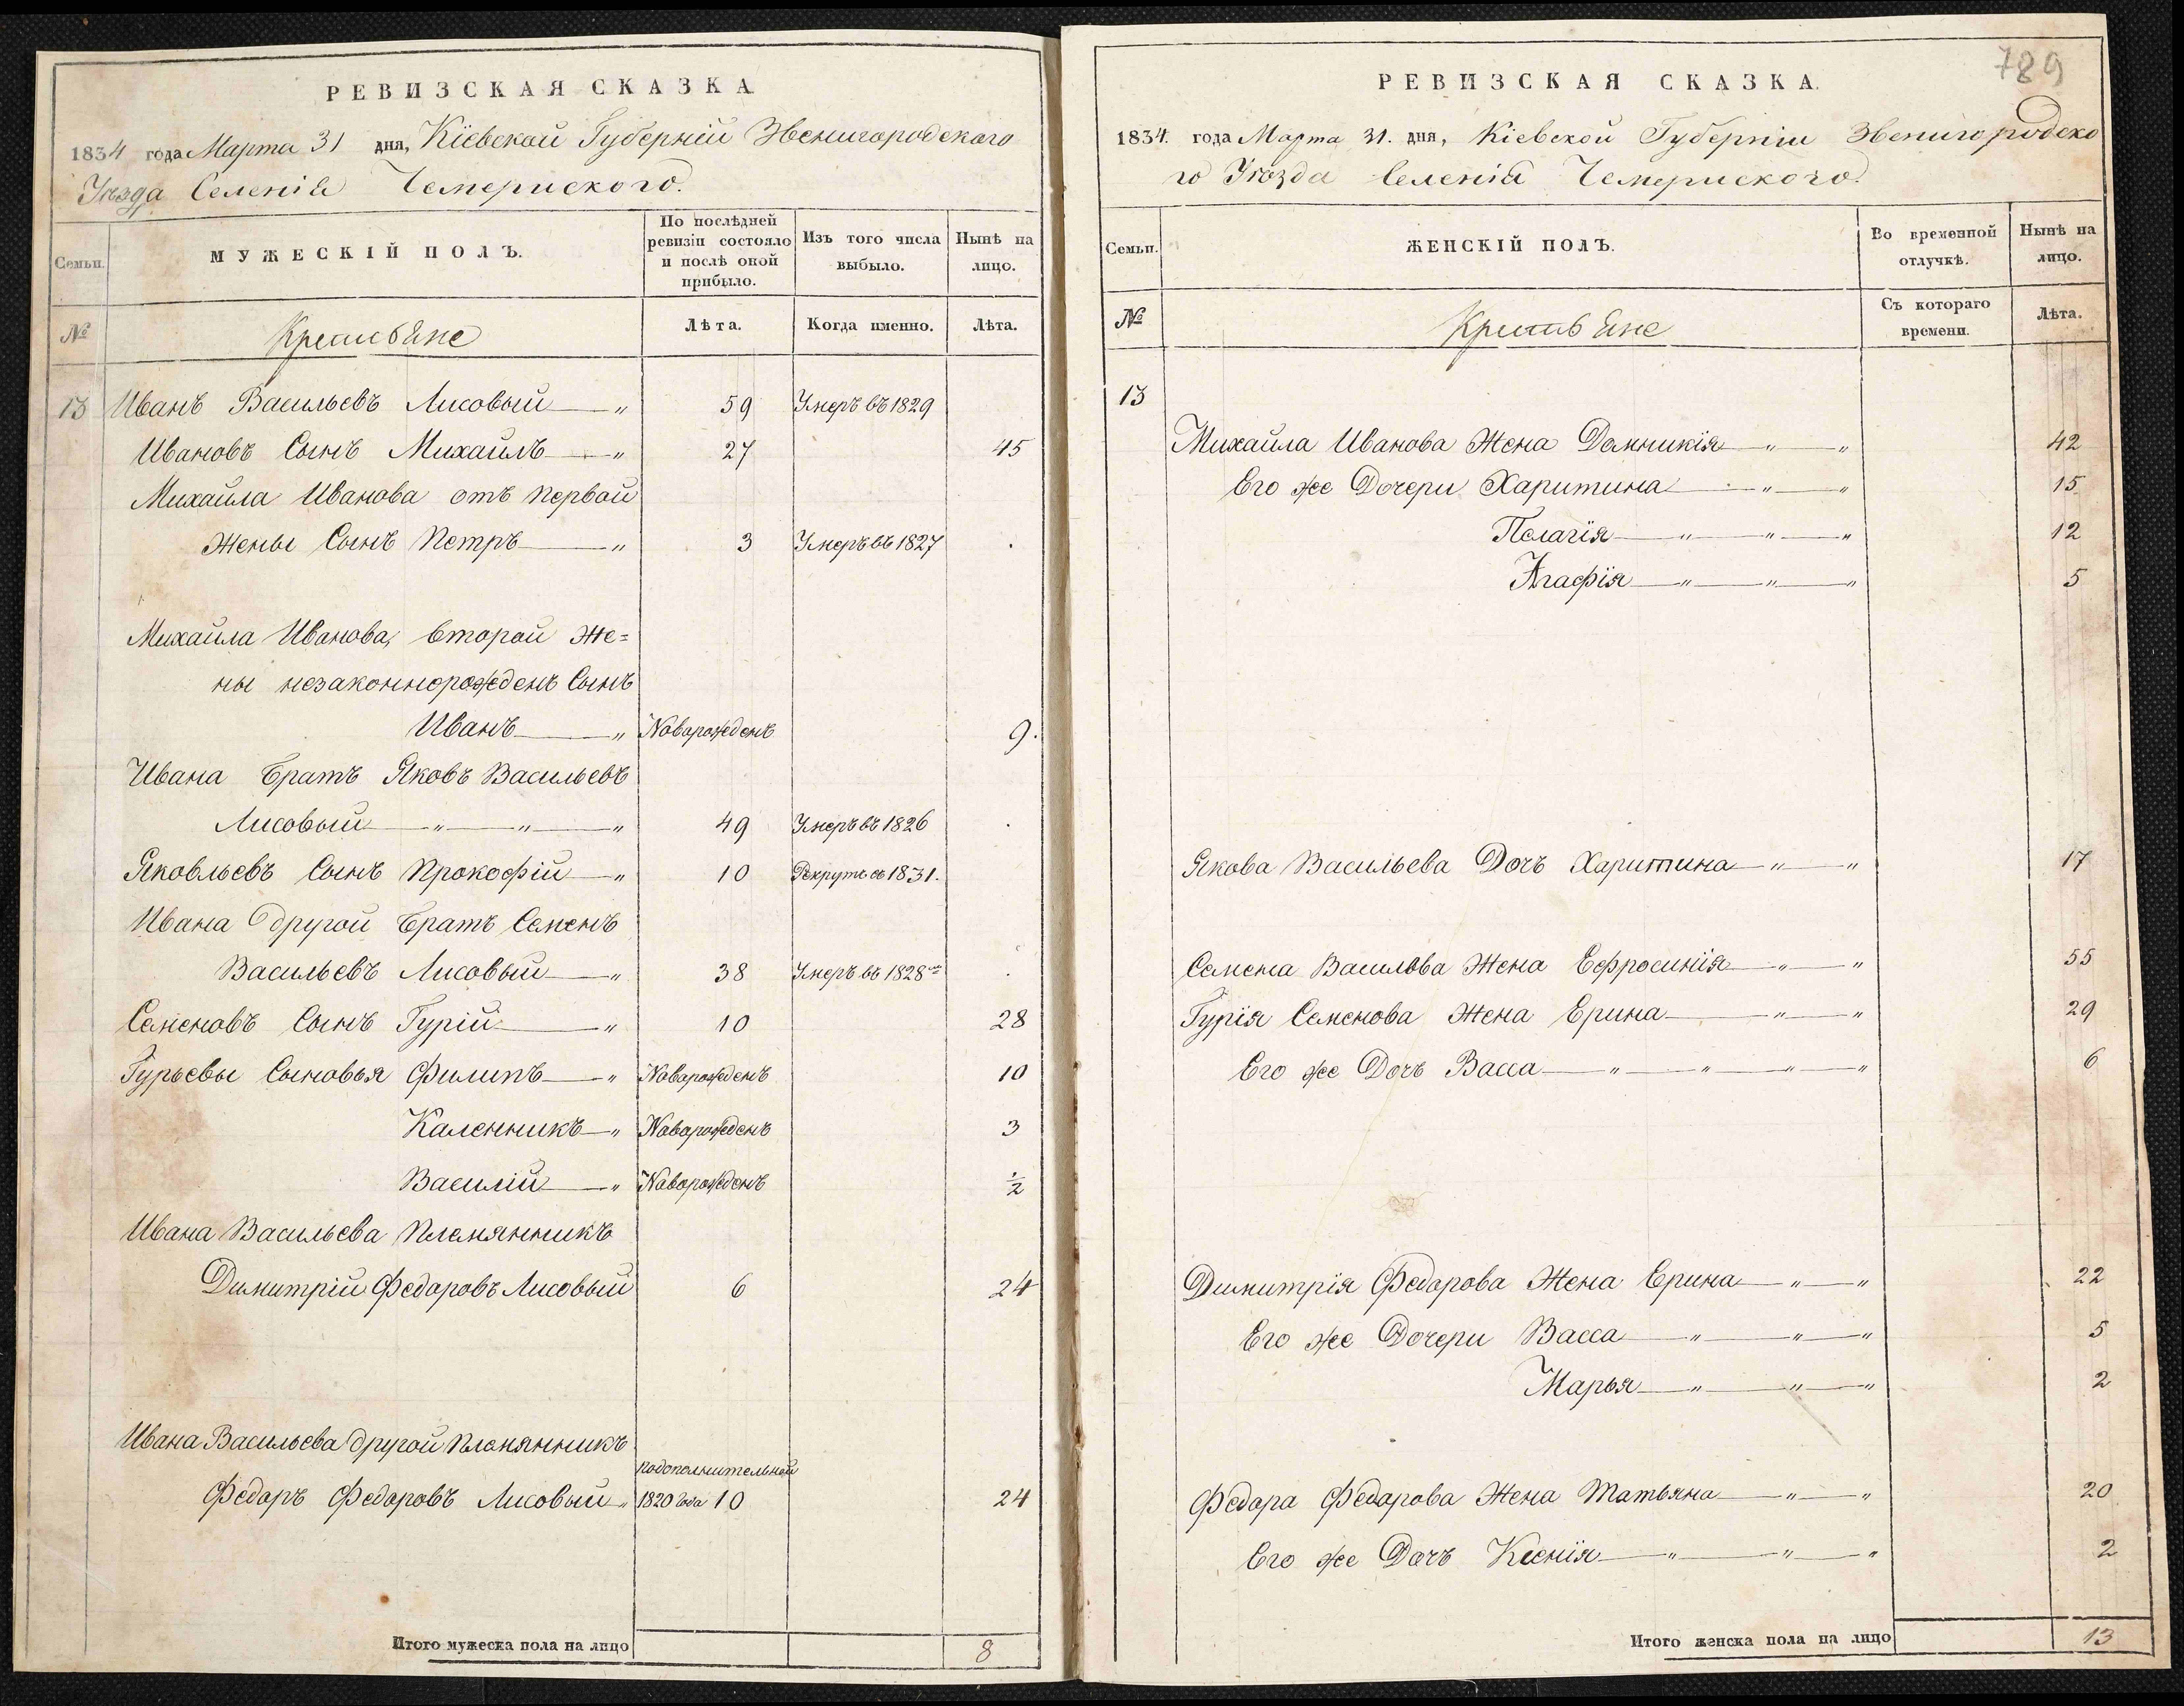 РЕВИЗСКАЯ СКАЗКА
1834 года Марта 31 дня, Кіевской Губерніи Звенигородского
Уѣзда Селенія Чемериского.
Семьи.
МУЖЕСКІЙ ПОЛЪ.
По послѣдней ревизіи состояло и послѣ оной прибыло.
Изъ того числа выбыло.
Нынѣ на лицо.
№
Крестьяне
Лѣта.
Когда именно.
Лѣта.
13 Иванъ Васильевъ Лисовый — „ 59 Умеръ въ 1829
Ивановъ Сынъ Михаилъ — „ 27 45
Михайла Иванова отъ первой
Жены Сынъ Петръ — „ 3 Умеръ въ 1827 .
Михайла Иванова, второй Же=
ны незаконнорожденъ Сынъ
Иванъ — „ Новорожденъ 9.
Ивана Братъ Яковъ Васильевъ
Лисовый — „ — „ — „ 49 Умеръ въ 1826 .
Яковлевъ Сынъ Прокофій — „ 10 Рекрутъ въ 1831.
Ивана другой Братъ Семенъ
Васильевъ Лисовый — „ 38 Умеръ въ 1828 .
Семеновъ Сынъ Гурій — „ 10 28
Гурьевы Сыновья Филипъ — „ Новорожденъ 10
Каленникъ — „ Новорожденъ 3
Василій — „ Новорожденъ ½
Ивана Васильева Племянникъ
Димитрій Федоровъ Лисовый 6 24
Ивана Васильева другой Племянникъ
подополнительной
Федоръ Федоровъ Лисовый „ 1820 года 10 24
Итого мужеска пола на лицо 8
789
РЕВИЗСКАЯ СКАЗКА.
1834. года Марта 31. дня, Кіевской Губерніи Звенигородско
го Уѣзда Селенія Чемериского.
Семьи.
ЖЕНСКІЙ ПОЛЪ.
Во временной отлучкѣ.
Нынѣ на лицо.
№
Крестьяне
Съ котораго времени.
Лѣта.
13
Михайла Иванова Жена Домникія — „ — „ 42
Его же Дочери Харитина — „ — „ 15
Пелагія — „ — „ — „ 12
Агафія — „ — „ — „ 5
Якова Васильева Дочъ Харитина — „ — „ 17
Семена Василева Жена Ефросинія — „ — „ 55
Гурія Семенова Жена Ерина — „ — „ 29
Его же Дочъ Васса — „ — „ — „ — „ 6
Димитрія Федорова Жена Ерина — „ — „ 22
Его же Дочери Васса — „ — „ — „ 5
Марья — „ — „ — „ 2
Федора Федорова Жена Татьяна — „ — „ 20
Его же Дочъ Ксенія — „ — „ — „ 2
Итого женска пола на лицо 13